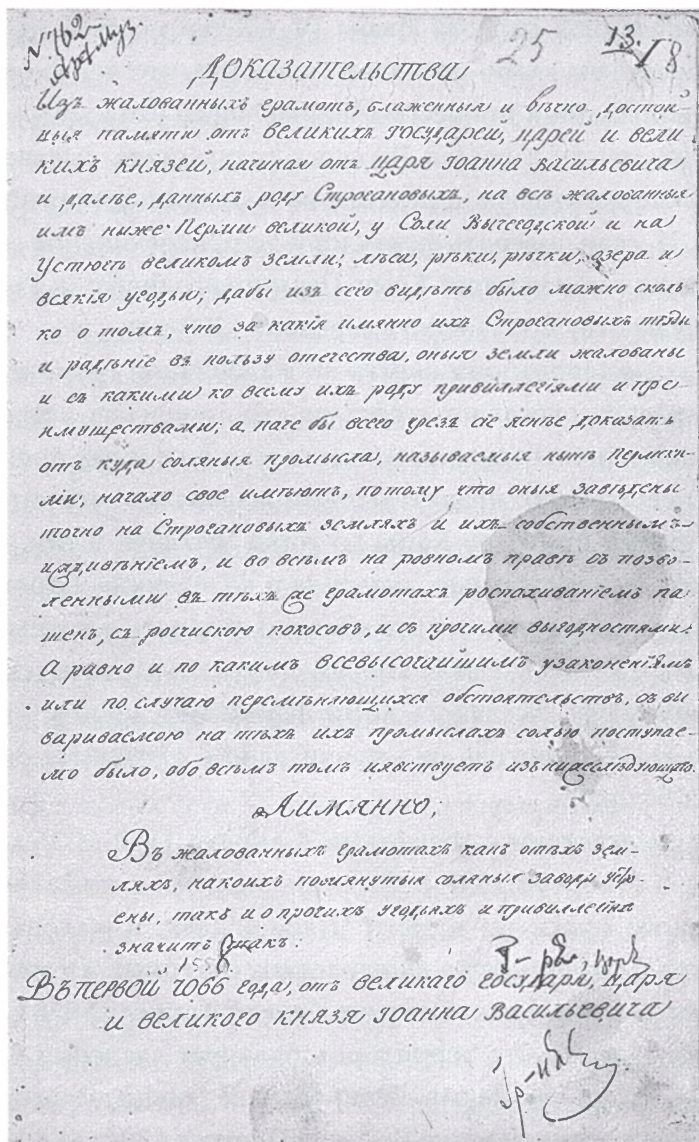 N 762
25
13.
18
Доказательства
Изъ жалованныхъ грамотъ, блаженныя и вѣчно достой-
ныя памяти отъ великихъ Государей, царей и вели-
кихъ князей, начиная отъ царя Іоанна Васильевича
и далѣе, данныхъ роду Строгановыхъ, на всѣ жалованныя
имъ ниже Перми великой, у Соли Вычегодской и на
Устюгѣ великомъ земли; лѣса, рѣки, рѣчки, озера и
всякія угодья; дабы изъ сего видѣть было можно сколь
ко о томъ, что за какія имянно ихъ Строгановыхъ тѣды
и радѣніе въ пользу отечества, оныя земли жалованы
и съ какими ко всему ихъ роду привиллегіями и пре
имуществами; а паче бы всего чрезъ сіе яснѣе доказать
отъ куда соляныя промысла, называемыя нынѣ Пермски-
ми, начало свое имѣютъ, потому что оныя заведены
точно на Строгановыхъ земляхъ и ихъ собственнымъ
иждивеніемъ, и во всѣмъ на ровномъ правѣ съ позво-
ленными въ тѣхъ же грамотахъ роспахиваніемъ па
шен, съ росчискою покосовъ, и съ прочими выгодностями.
А равно и по какимъ всевысочайшимъ узаконеніямъ
или по случаю перемѣняющихся обстоятельствъ, съ вы
вариваемою на тѣхъ ихъ промыслахъ солью поступае-
мо было, обо всѣмъ томъ явствуетъ изъ нижеслѣдующаго.
Аимянно;
Въ жалованныхъ грамотахъ какъ отѣхъ зем-
ляхъ, накоихъ помянутыя соляные заводы устро-
ены, такъ и о прочихъ угодьяхъ и привиллегіяхъ
значитъ такъ:
1558
Въ первой 7066 года, отъ великаго государя, царя
и великого князя Іоанна Васильевича